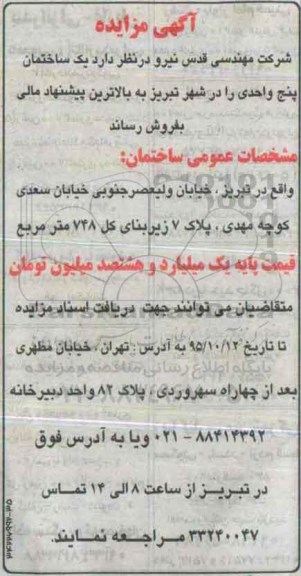 آگهی مزایده
شرکت مهندسی قدس نیرو درنظر دارد یک ساختمان
پنج واحدی را در شهر تبریز به بالاترین پیشنهاد مالی
بفروش رساند
مشخصات عمومی ساختمان:
واقع در تبریز ، خیابان ولیعصرجنوبی خیابان سعدی
کوچه مهدی ، پلاک ۷ زیربنای کل ۷۴۸ متر مربع
قیمت پایه یک میلیارد و هشتصد میلیون تومان
متقاضیان می توانند جهت دریافت اسناد مزایده
تا تاریخ ۹۵/۱۰/۱۲ به آدرس : تهران ، خیابان مطهری
بعد از چهاراه سهروردی ، پلاک ۸۲ واحد دبیرخانه
۸۸۴۱۴۳۹۲ - ۰۲۱ ویا به آدرس فوق
در تبریز از ساعت ۸ الی ۱۴ تماس
۳۳۲۴۰۰۴۷ مراجعه نمایند.